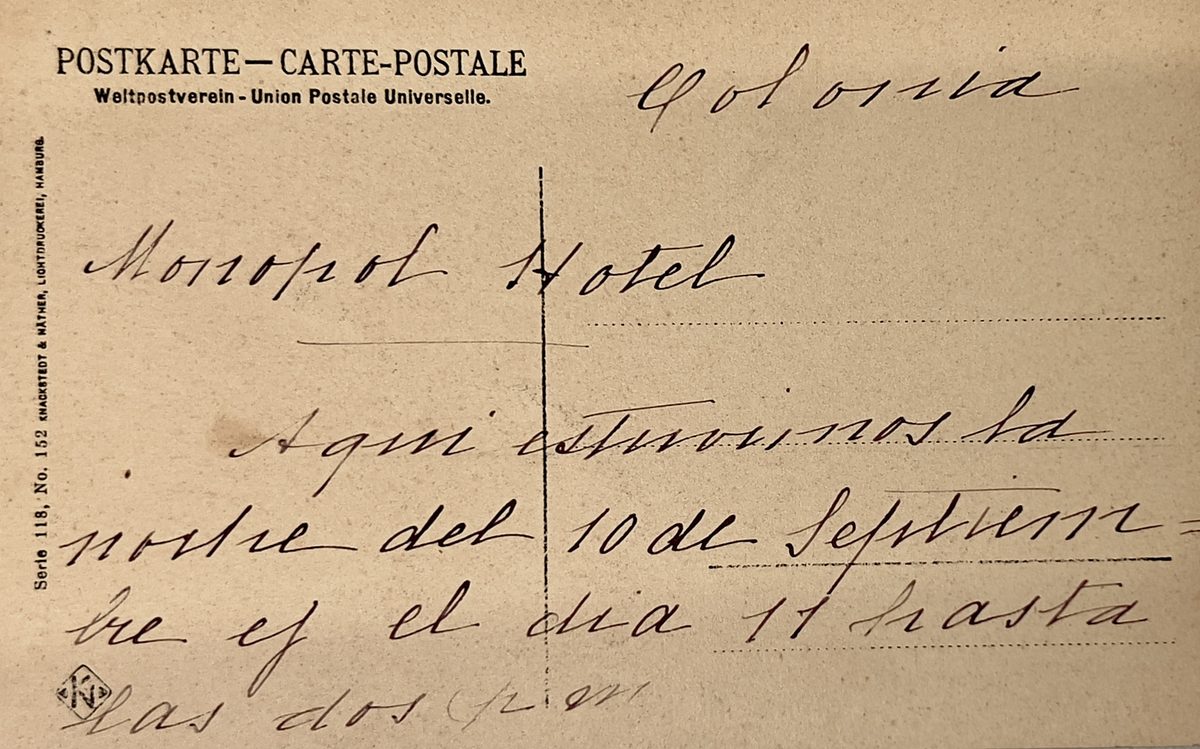 POSTKARTE — CARTE-POSTALE
Weltpostverein - Union Postale Universelle.
Serie 118, No. 152 KNACKSTEDT & NÄTHER, LICHTDRUCKEREI, HAMBURG.
Colonia
Monopol Hotel
Aqui estuvimos la
noche del 10 de Septiem=
bre y el dia 11 hasta
las dos p m
KN